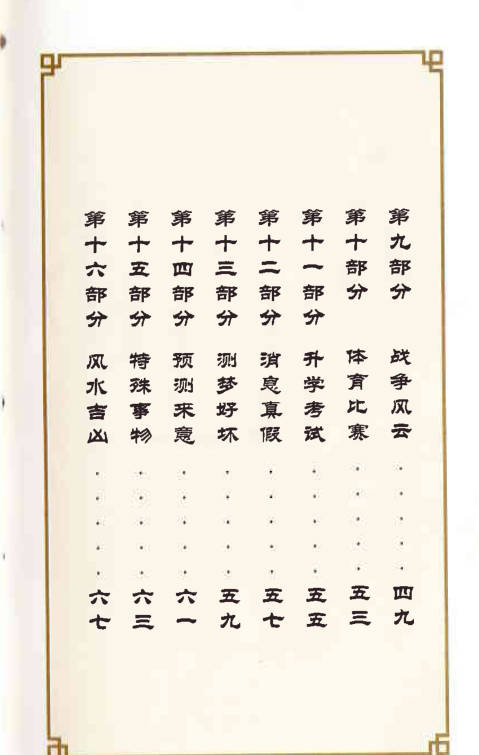 第九部分 战争风云·····四九
第十部分 体育比赛·····五三
第十一部分 升学考试·····五五
第十二部分 消息真假·····五七
第十三部分 测梦好坏·····五九
第十四部分 预测来意·····六一
第十五部分 特殊事物·····六三
第十六部分 风水吉凶·····六七